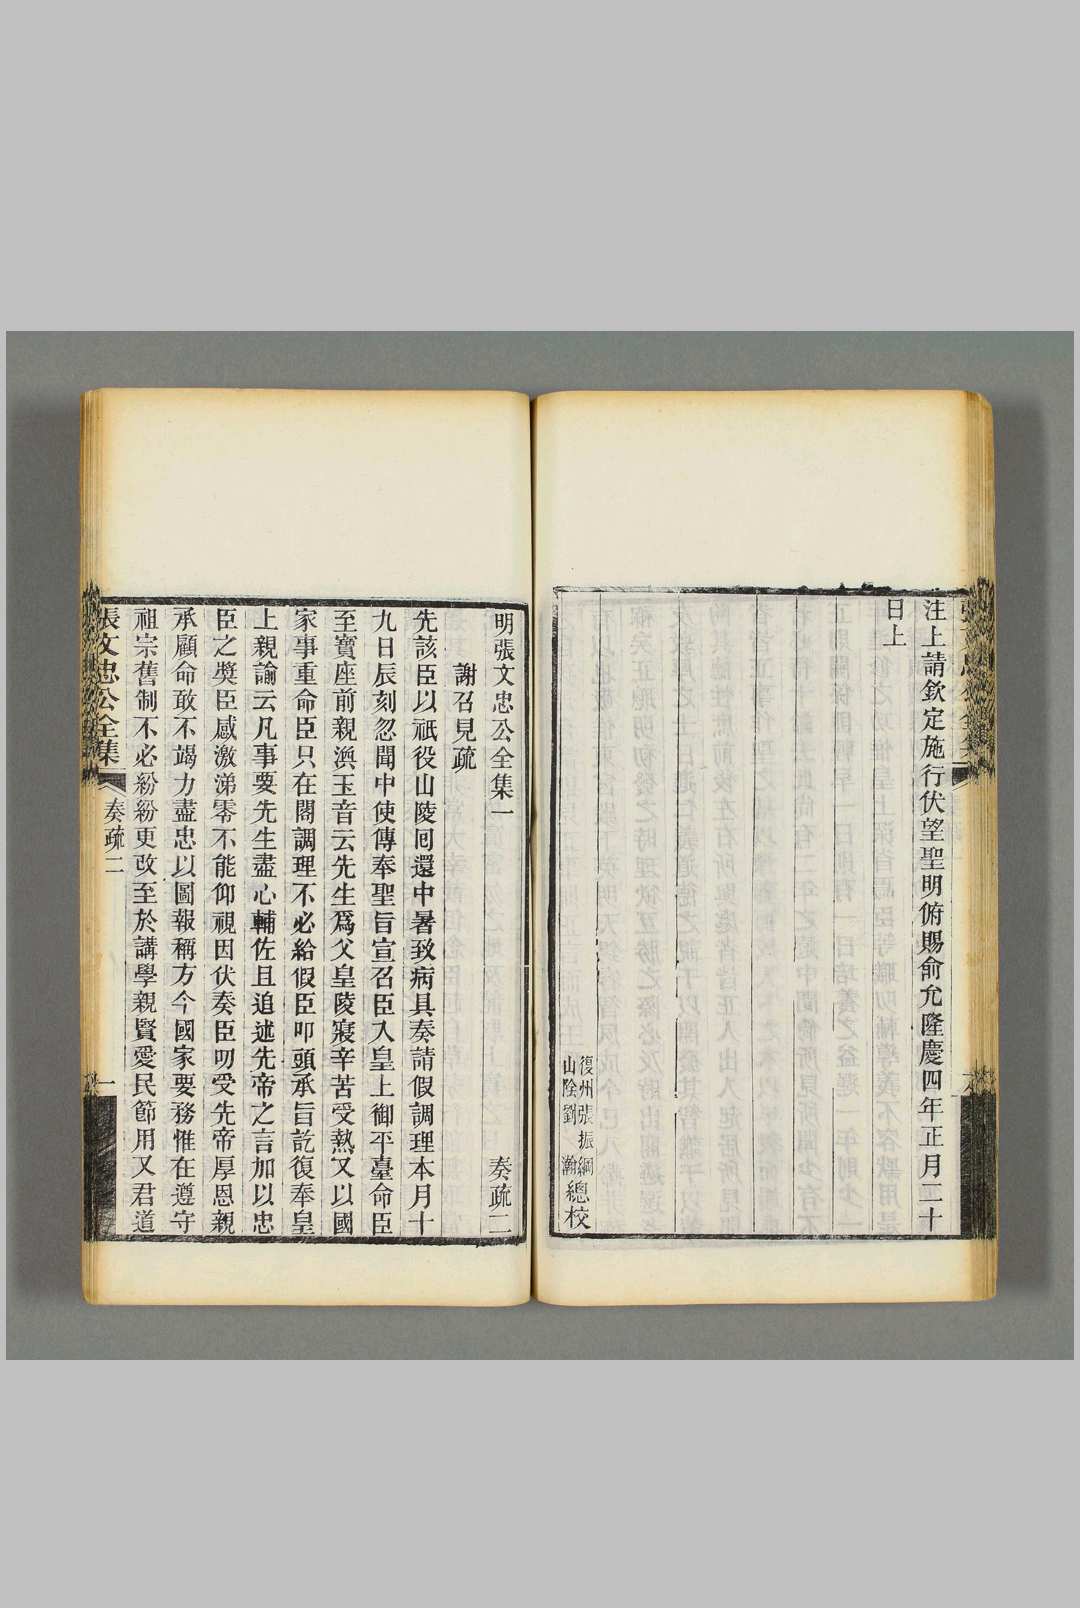 注上請欽定施行伏望聖明俯賜俞允隆慶四年正月二十
日上
復州張振綱
山陰劉瀚
總校
明張文忠公全集一
奏疏二
謝召見疏
先該臣以祇役山陵囘還中暑致病具奏請假調理本月十
九日辰刻忽聞中使傳奉聖旨宣召臣入皇上御平臺命臣
至寶座前親渙玉音云先生爲父皇陵寢辛苦受熱又以國
家事重命臣只在閣調理不必給假臣叩頭承旨訖復奉皇
上親諭云凡事要先生盡心輔佐且追述先帝之言加以忠
臣之獎臣感激涕零不能仰視因伏奏臣叨受先帝厚恩親
承顧命敢不竭力盡忠以圖報稱方今國家要務惟在遵守
祖宗舊制不必紛紛更改至於講學親賢愛民節用又君道
張文忠公全集
奏疏二
一